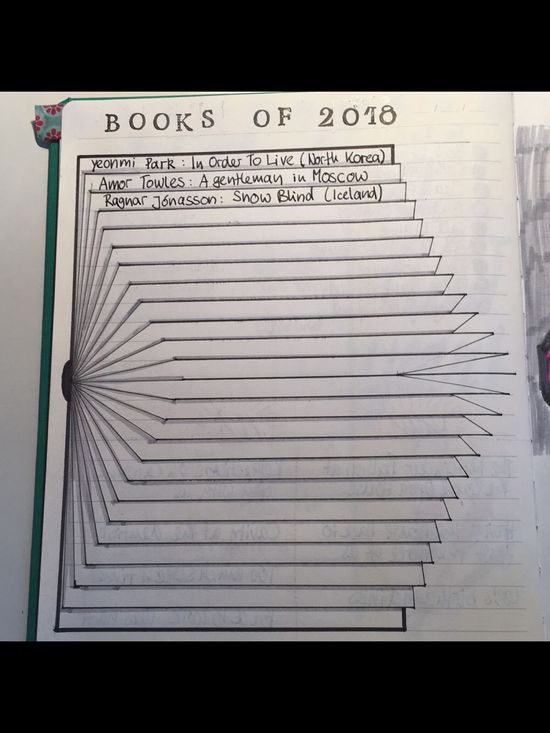 BOOKS OF 2018
yeonmi Park: In Order To Live (North Korea)
Amor Towles: A gentleman in Moscow
Ragnar Jónasson: Snow Blind (Iceland)